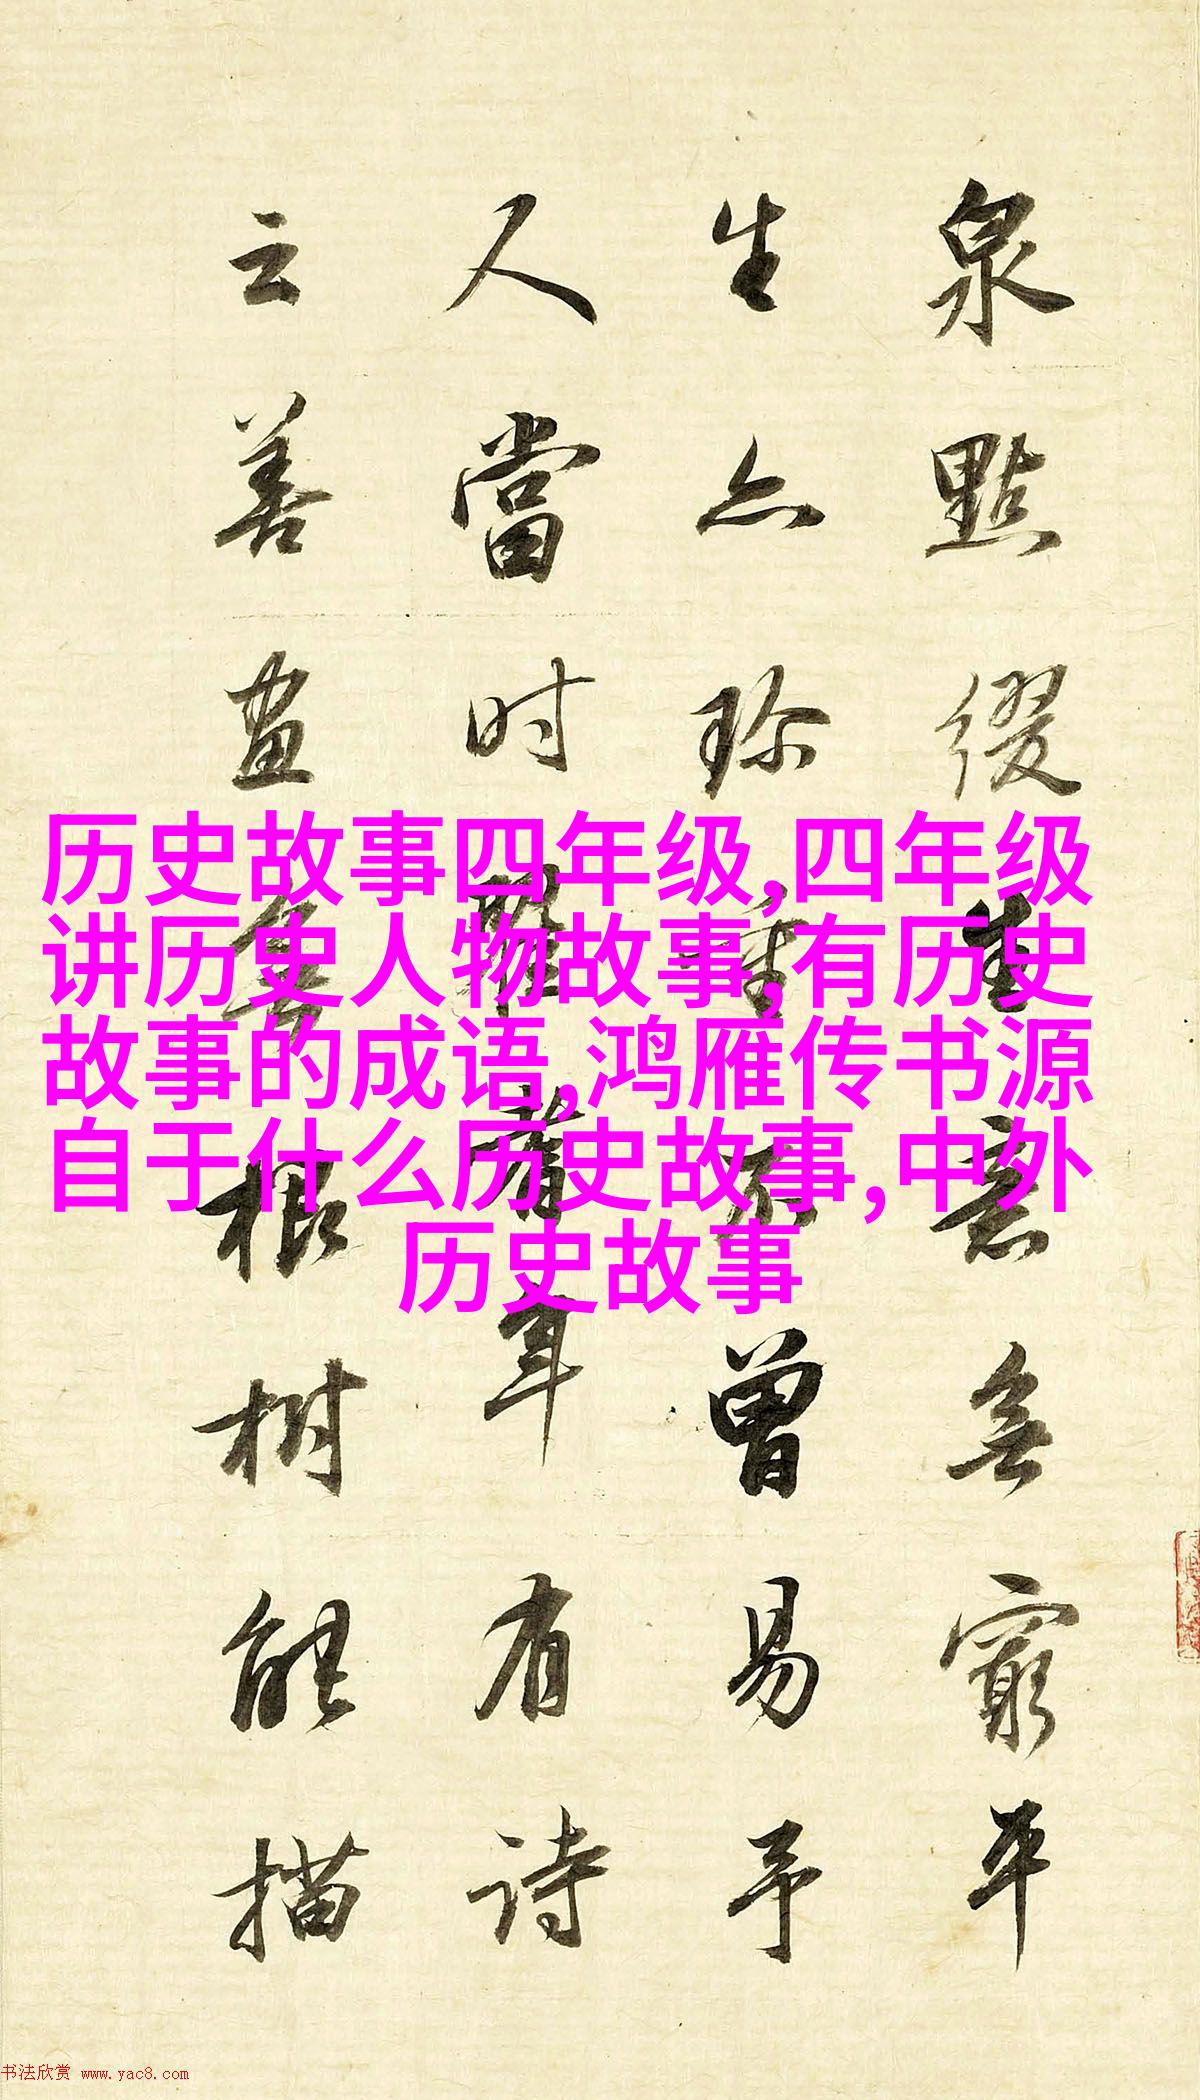 历史故事四年级,四年级
讲历史人物故事,有历史
故事的成语,鸿雁传书源
自于什么历史故事,中外
历史故事
泉點綴生意無窮平
生亦珎重不曾易予
人當时有诗
云善畫無根树能描
书法欣赏 www.yac8.com